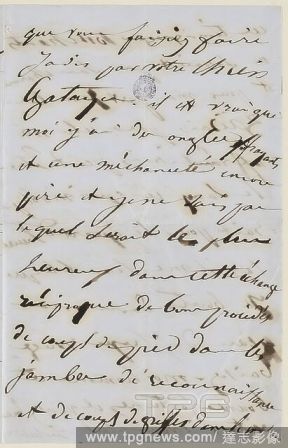 que vous faisiez faire
jadis par votre chien
il est vrai que
moi j'ai des ongles
et une méchanceté encore
pire et je ne sais pas
lequel serait le plus
heureux dans cette échange
réciproque de bons procédés
de coups de pied dans les
jambes de reconnaissance
et de coups de griffes dans les
www.tpgnews.com/
達志影像